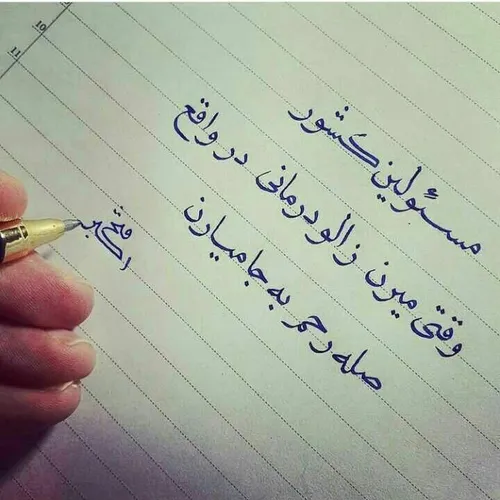 10
11
مسئولین کشور
وقتی میرن زالو درمانی در واقع
صله رحم به جا میارن
فتحی
اکبر